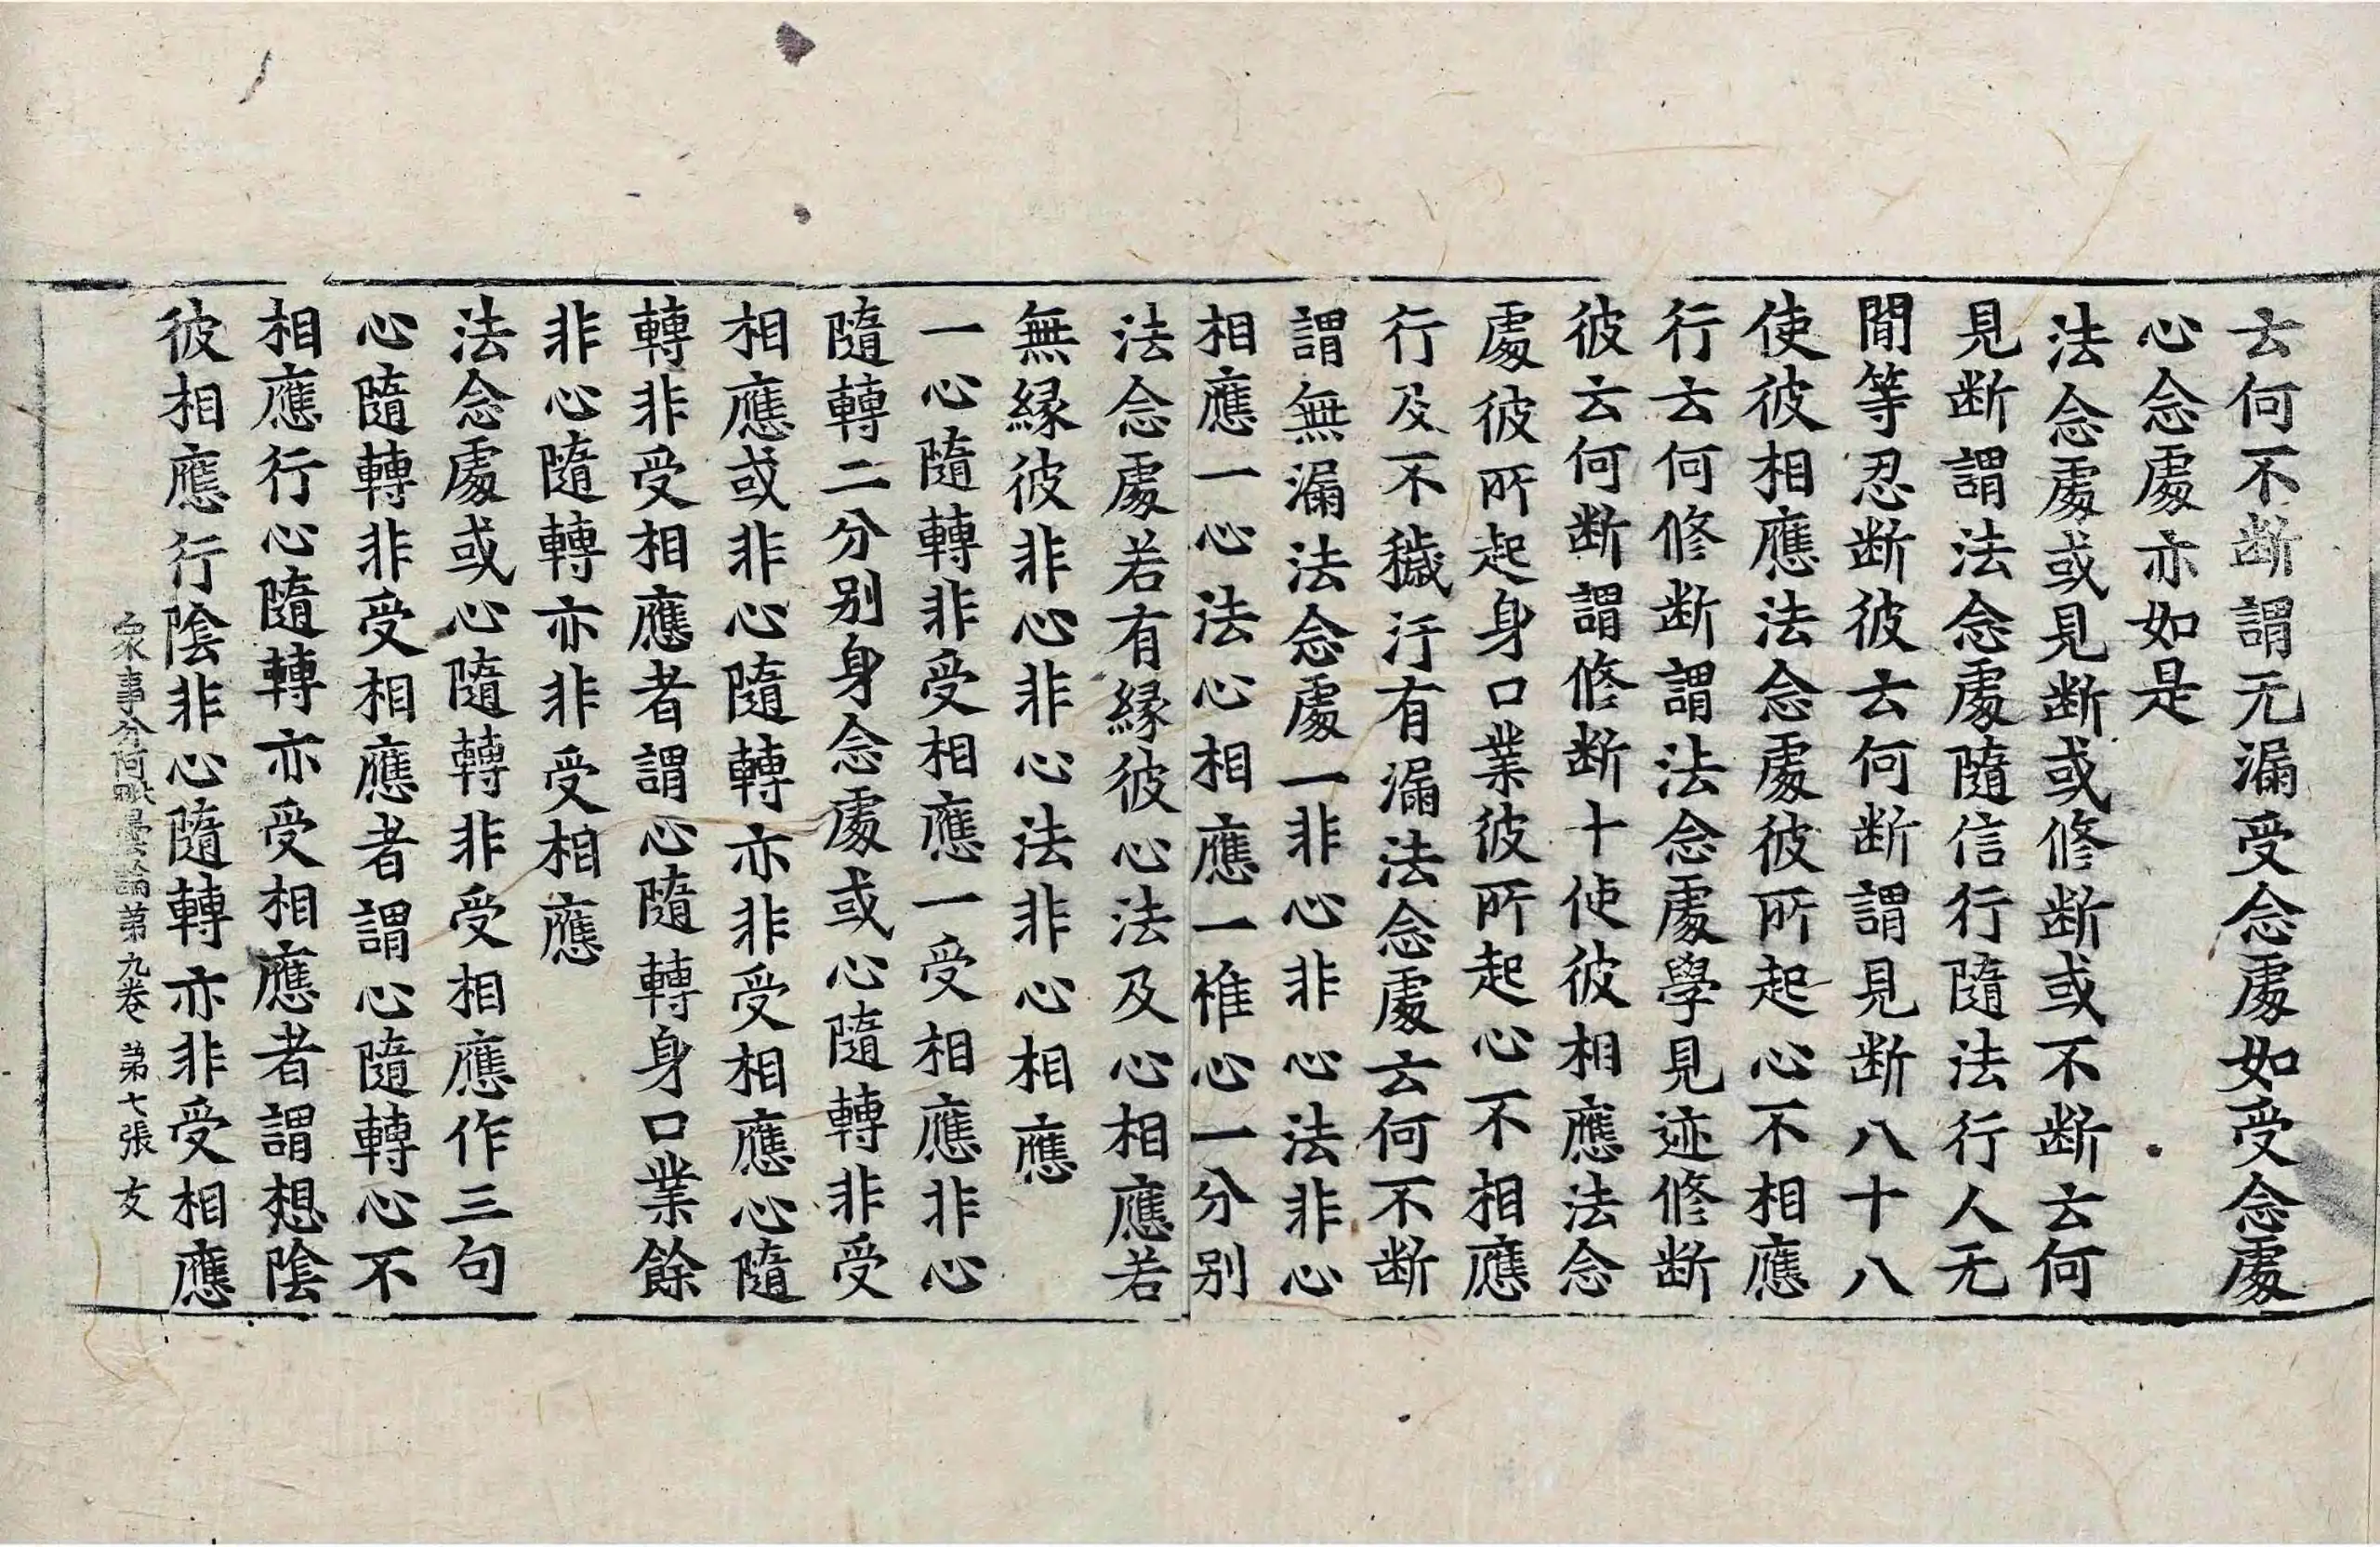 云何不断謂无漏受念處如受念處
心念處亦如是
法念處或見断或修断或不断云何
見断謂法念處隨信行隨法行人无
閒等忍断彼云何断謂見断八十八
使彼相應法念處彼所起心不相應
行云何修断謂法念處學見迹修断
彼云何断謂修断十使彼相應法念
處彼所起身口業彼所起心不相應
行及不穢汙有漏法念處云何不断
謂無漏法念處一非心非心法非心
相應一心法心相應一惟心一分别
法念處若有緣彼心法及心相應若
無緣彼非心非心法非心相應
一心隨轉非受相應一受相應非心
隨轉二分别身念處或心隨轉非受
相應或非心隨轉亦非受相應心隨
轉非受相應者謂心隨轉身口業餘
非心隨轉亦非受相應
法念處或心隨轉非受相應作三句
心隨轉非受相應者謂心隨轉心不
相應行心隨轉亦受相應者謂想陰
彼相應行陰非心隨轉亦非受相應
衆事分阿毗曇論第九卷 第七張 友